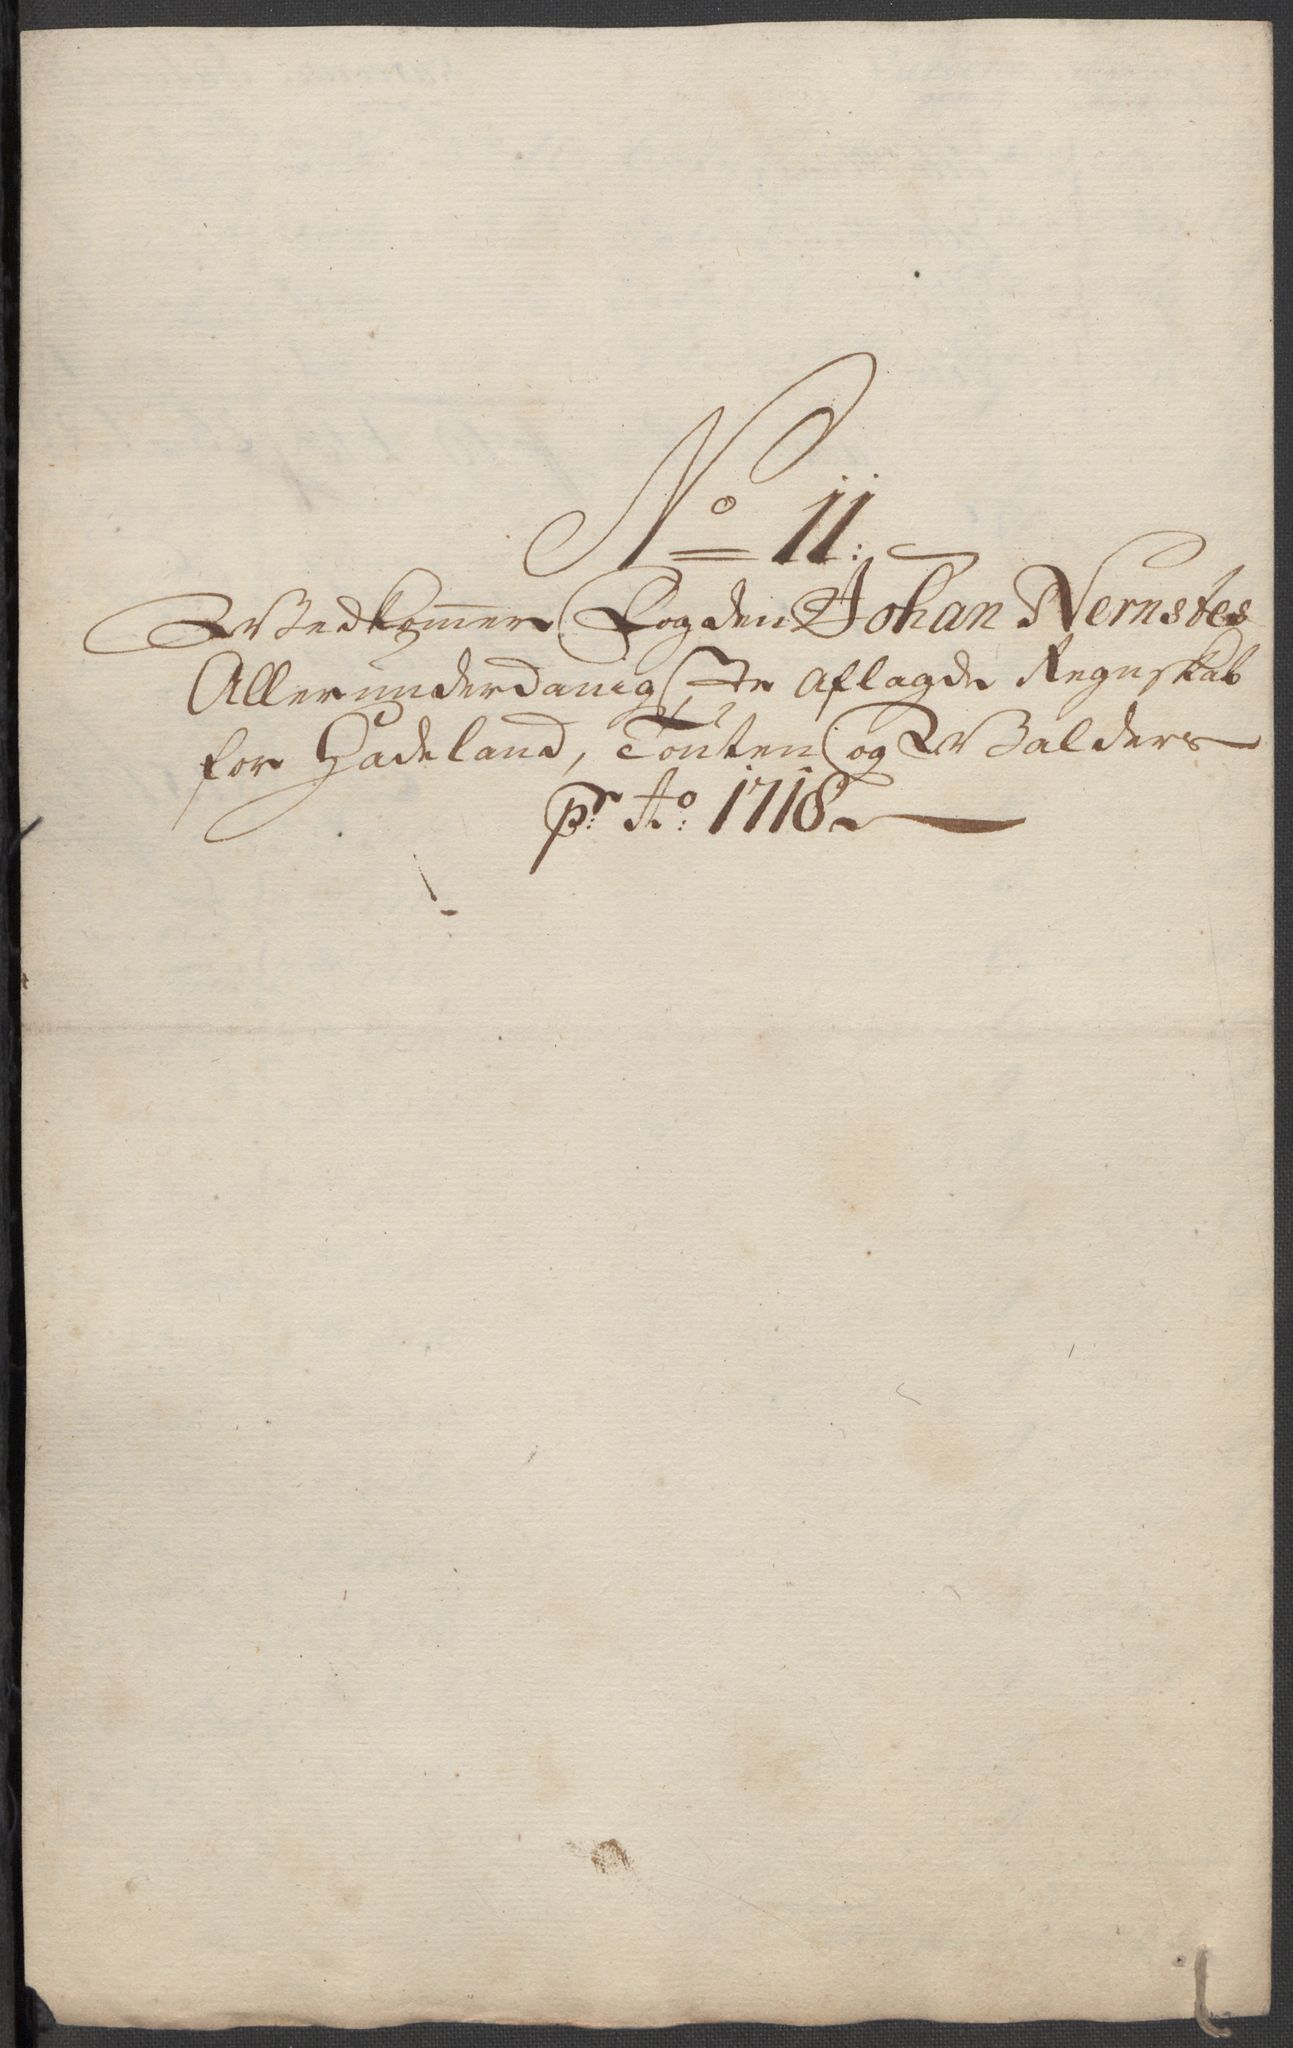 No 11:
Vedkommer Fogden Johan Nernstes
Allerunderdanigste aflagde Regnskab
for Hadeland, Touten og Valders
pr Ao: 1718